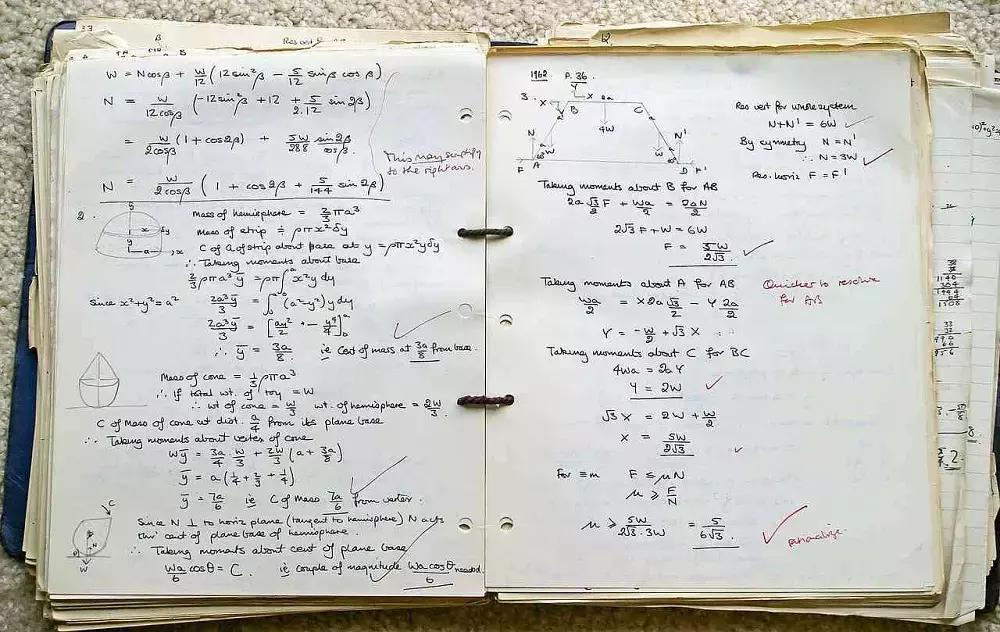 W = Ncosβ + W/12 (12 sin²β - 5/12 sinβ cosβ)
N = W/12cosβ (-12sin²β + 12 + 5/2.12 sin 2β)
= W/2cosβ (1 + cos2β) + 5W/288 sin2β/cosβ.
This may simplify
to the right ans.
N = W/2cosβ (1 + cos 2β + 5/144 sin 2β)
2.
Mass of hemisphere = 2/3 πa³
Mass of strip ≑ ρπx²δy
C of G of strip about base at y = ρπx²yδy
∴ Taking moments about base
2/3 ρπa³ȳ = ρπ∫x²y dy
Since x²+y²=a²
2a³ȳ/3 = ∫(a²-y²)y dy
2a³ȳ/3 = [ay²/2 - y⁴/4]
∴ ȳ = 3a/8. ie Cent of mass at 3a/8 from base.
Mass of cone = 1/3 ρπa³
∴ If total wt. of toy = W
∴ wt of cone = W/3 wt. of hemisphere = 2W/3.
C of Mass of cone at dist. a/4 from its plane base
∴ Taking moments about vertex of cone
Wȳ = 3a/4 . W/3 + 2W/3 (a + 3a/8)
ȳ = a(1/4 + 2/3 + 1/4)
ȳ = 7a/6 ie C of Mass 7a/6 from vertex.
Since N ⊥ to horiz plane (tangent to hemisphere) N acts
thro' cent of plane base of hemisphere.
∴ Taking moments about cent of plane base
Wa/6 cosθ = C. ie couple of magnitude Wa cosθ/6 needed.
1962 P. 36.
3.
Res vert for whole system
N+N' = 6W
By symmetry N = N'
∴ N = 3W
Res. horiz F = F'
Taking moments about B for AB
2a √3/2 F + Wa/2 = 2aN/2
2√3F + W = 6W
F = 5W/2√3.
Taking moments about A for AB
Quicker to resolve
for AB
Wa/2 = X2a √3/2 - Y 2a/2
Y = -W/2 + √3 X
Taking moments about C for BC
4Wa = 2aY
Y = 2W
√3 X = 2W + W/2
X = 5W/2√3
for ≡m F ≤ μN
μ ≥ F/N
μ ≥ 5W/2√3.3W = 5/6√3.